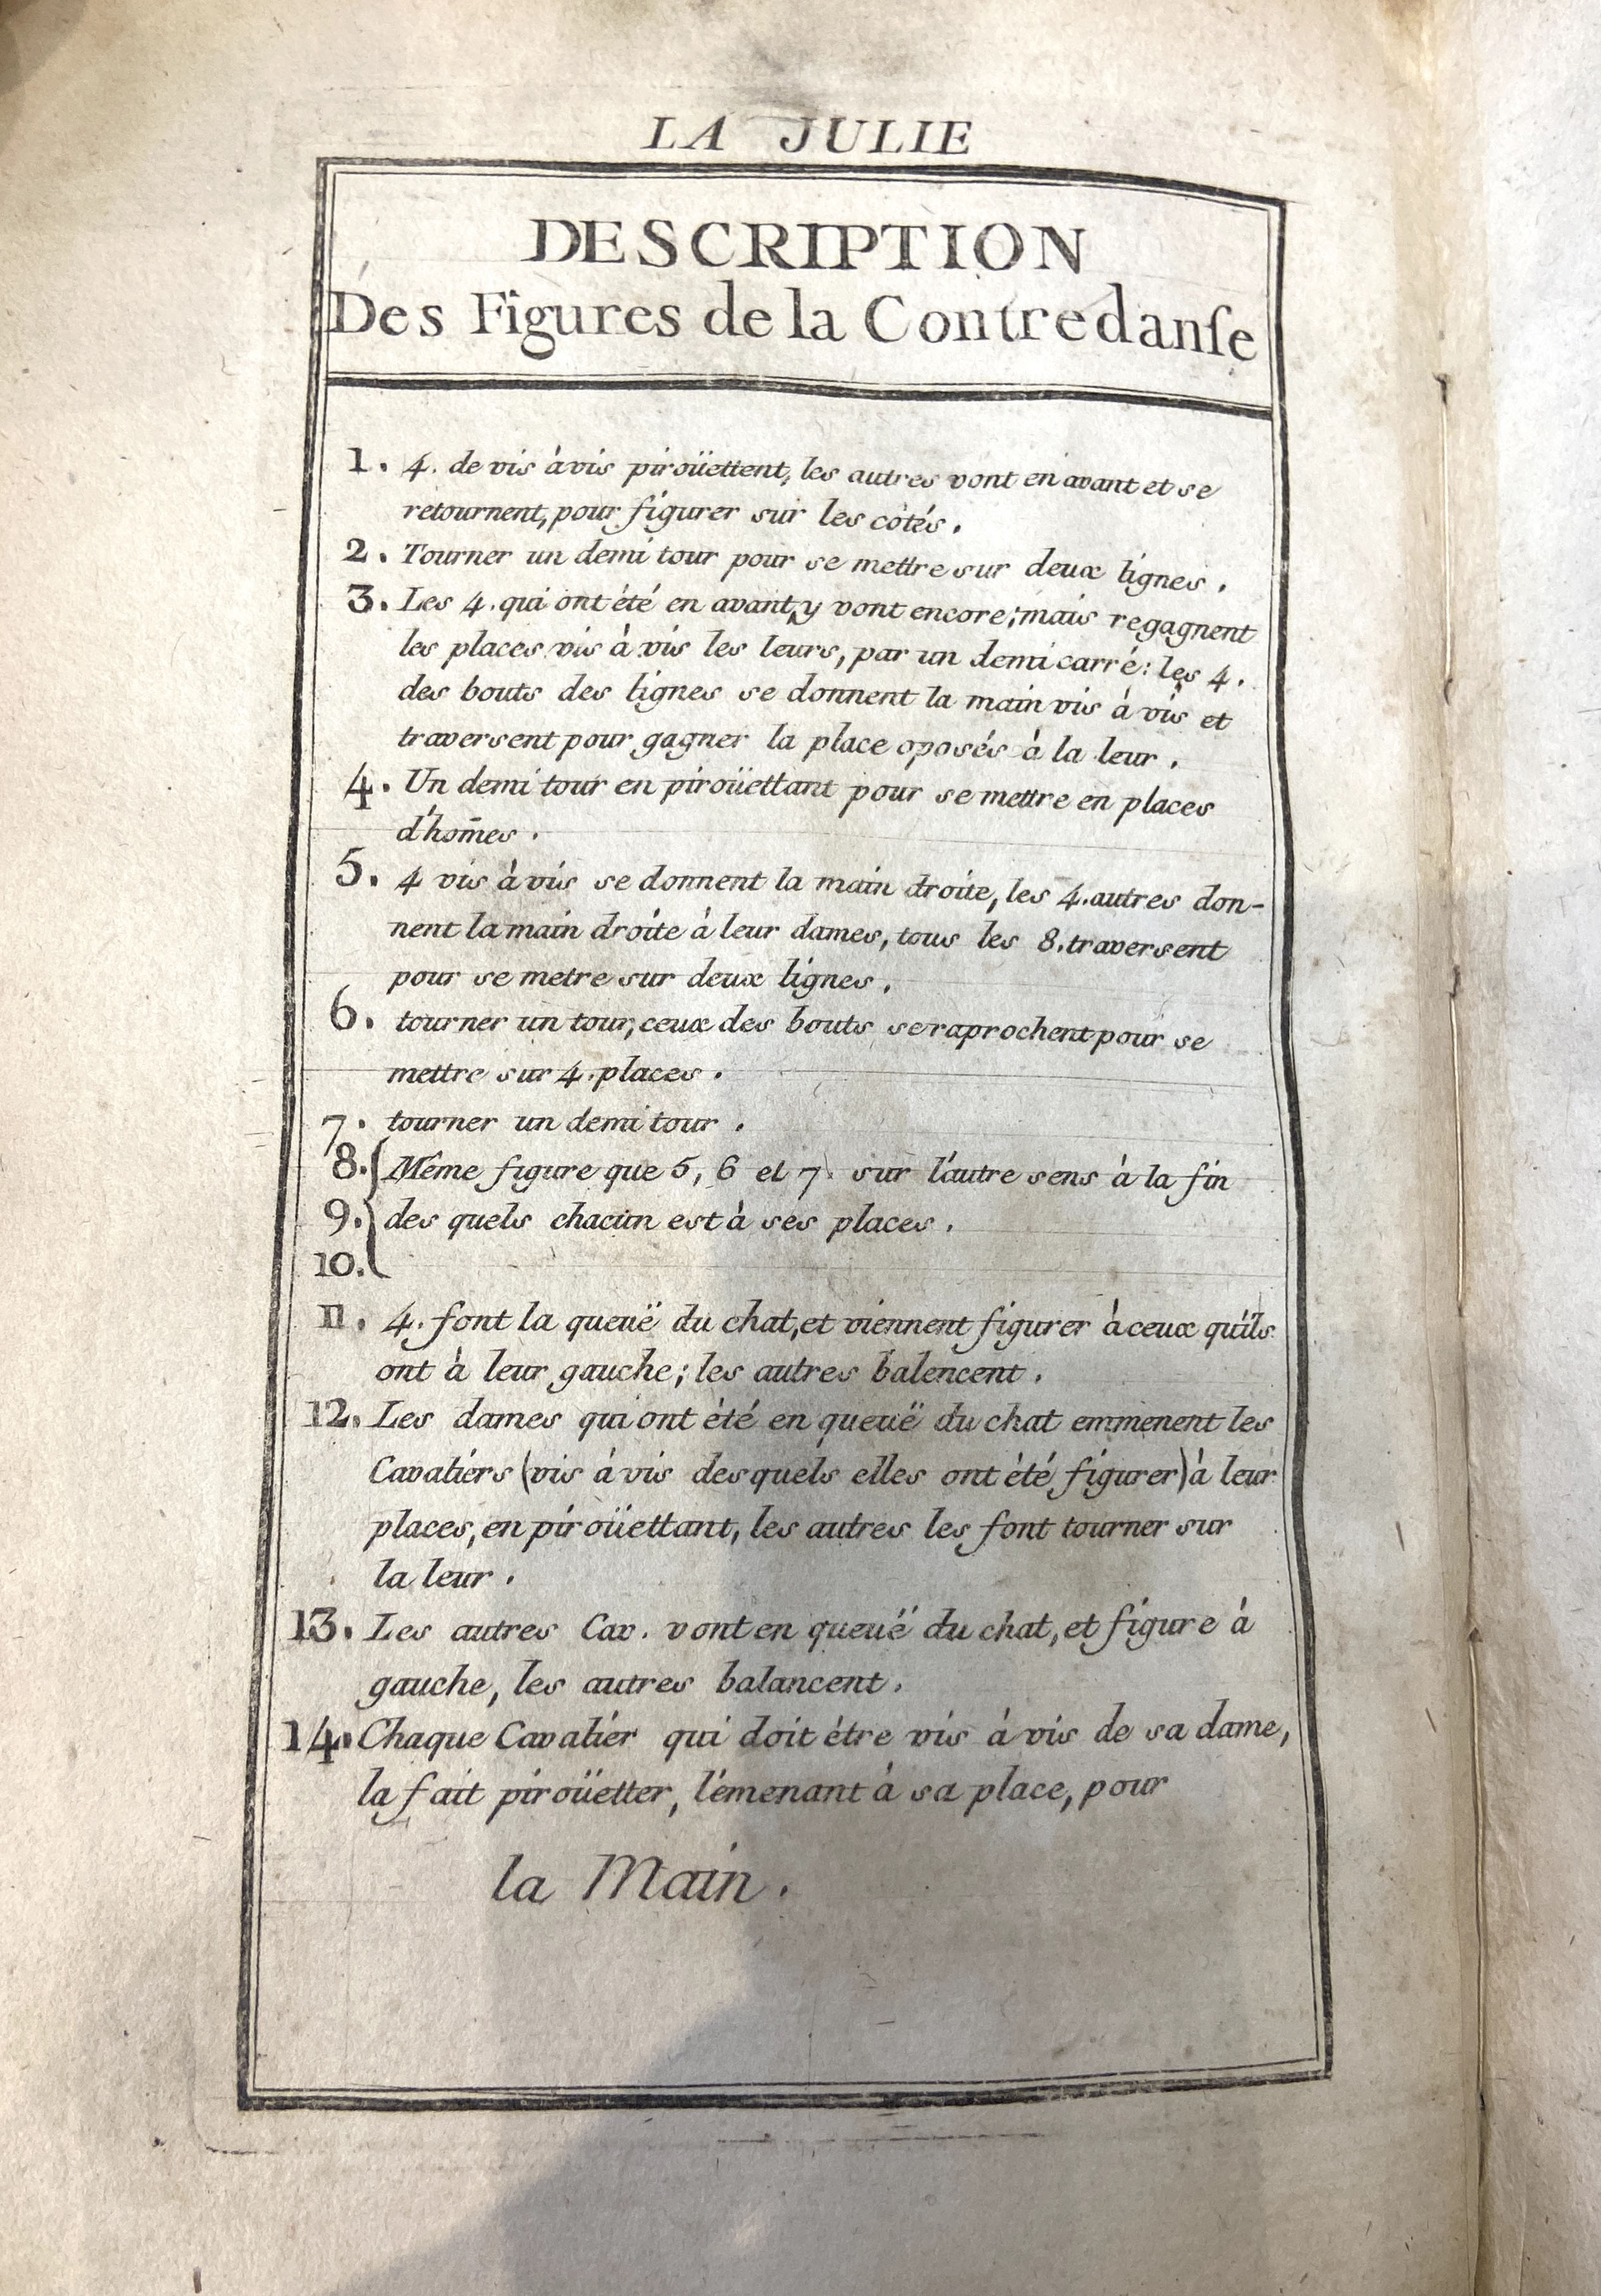 LA JULIE
DESCRIPTION
Des Figures de la Contredanſe
1. 4. de vis à vis piroüettent, les autres vont en avant et se
retournent, pour figurer sur les côtés.
2. Tourner un demi tour pour se mettre sur deux lignes.
3. Les 4. qui ont été en avant, y vont encore; mais regagnent
les places vis à vis les leurs, par un demi carré: les 4.
des bouts des lignes se donnent la main vis à vis et
traversent pour gagner la place oposés à la leur.
4. Un demi tour en piroüettant pour se mettre en places
d'hom̄es.
5. 4 vis à vis se donnent la main droite, les 4. autres don-
nent la main droite à leur dames, tous les 8. traversent
pour se metre sur deux lignes.
6. tourner un tour, ceux des bouts se raprochent pour se
mettre sur 4. places.
7. tourner un demi tour.
8. Même figure que 5, 6 et 7. sur l'autre sens à la fin
9. des quels chacun est à ses places.
10.
11. 4. font la queuë du chat, et viennent figurer à ceux qu'ils
ont à leur gauche; les autres balencent.
12. Les dames qui ont été en queuë du chat emmenent les
Cavaliérs (vis à vis desquels elles ont été figurer) à leur
places, en piroüettant, les autres les font tourner sur
la leur.
13. Les autres Cav. vont en queuë du chat, et figure à
gauche, les autres balancent.
14. Chaque Cavaliér qui doit être vis à vis de sa dame,
la fait piroüetter, l'émenant à sa place, pour
la Main.